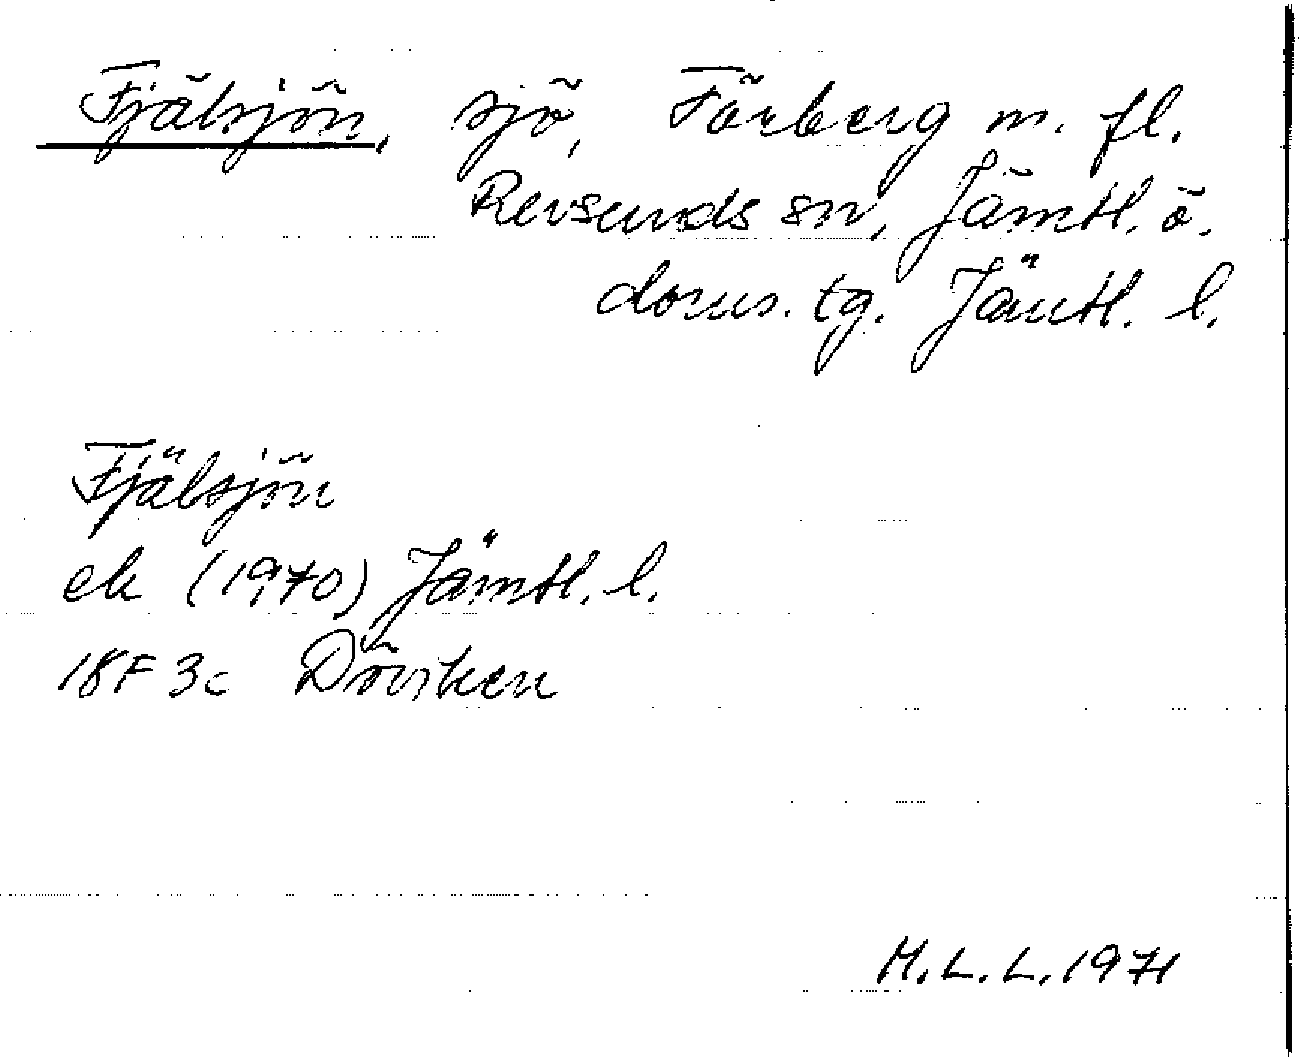 Fjälsjön, sjö, Förberg m. fl.
Revsunds sn, Jämtl. ö.
doms. tg. Jämtl. l.
Fjälsjön
ek (1970) Jämtl. l.
18F 3c Döviken
M.L.L. 1971